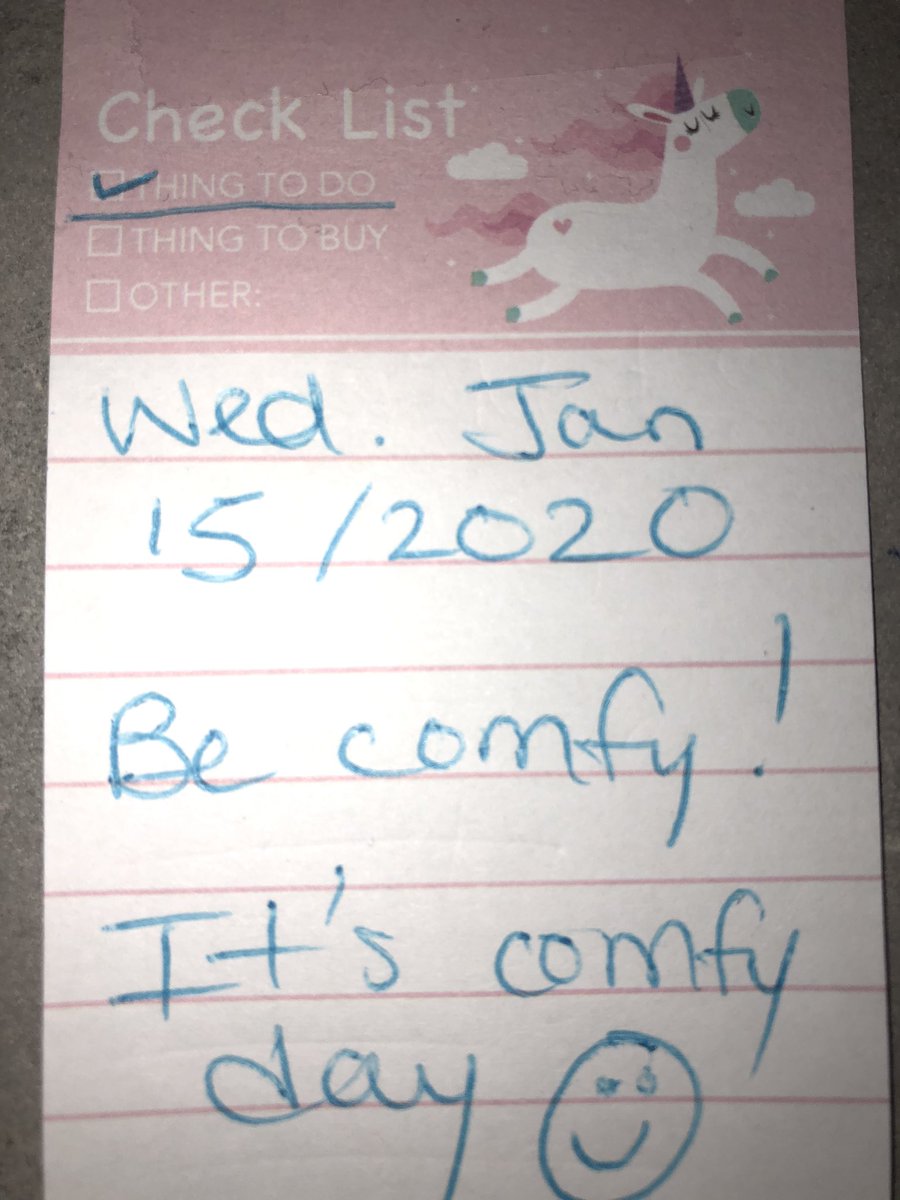 Check List
THING TO DO
THING TO BUY
OTHER:
Wed. Jan
15/2020
Be comfy!
It's comfy
day